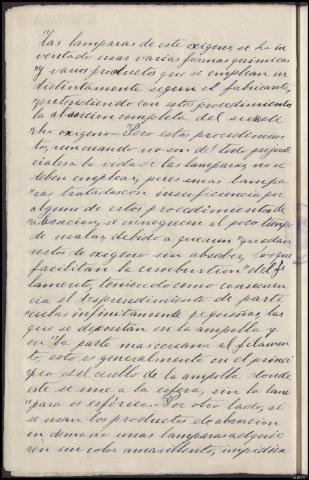 "las lamparas de este oxigeno, se ha in
ventado usar varias formas quimicas
"y varios productos que se emplean in
distintamente segun el fabricante,
"pretendiendo con estos procedimientos
la absorcion completa del
"cho oxigeno - Pero estos procedimien
tos, aun cuando no son del todo perjudi
ciales a la vida de las lamparas, no se
deben emplear, pues unas lampa
"ras tratadas con insuficiencia por
alguno de estos procedimientos de
"absorcion, se ennegrecen al poco tiempo
de usarlas, debido a que aun "quedan
restos de oxigeno sin absorber, los que
facilitan la combustion" del fi
lamento, teniendo como consecuen
cia el desprendimiento de parti
"culas infinitamente pequeñas, las
que se depositan en la ampolla y
en "la parte mas cercana al filamen
to, esto es generalmente en el princi
pio del cuello de la ampolla donde
este se une a la esfera, si la lam
"para es esférica. - Por otro lado, si
se usan los productos de absorcion
en demasia unas lamparas adquie
ren un color amarillento, impidien